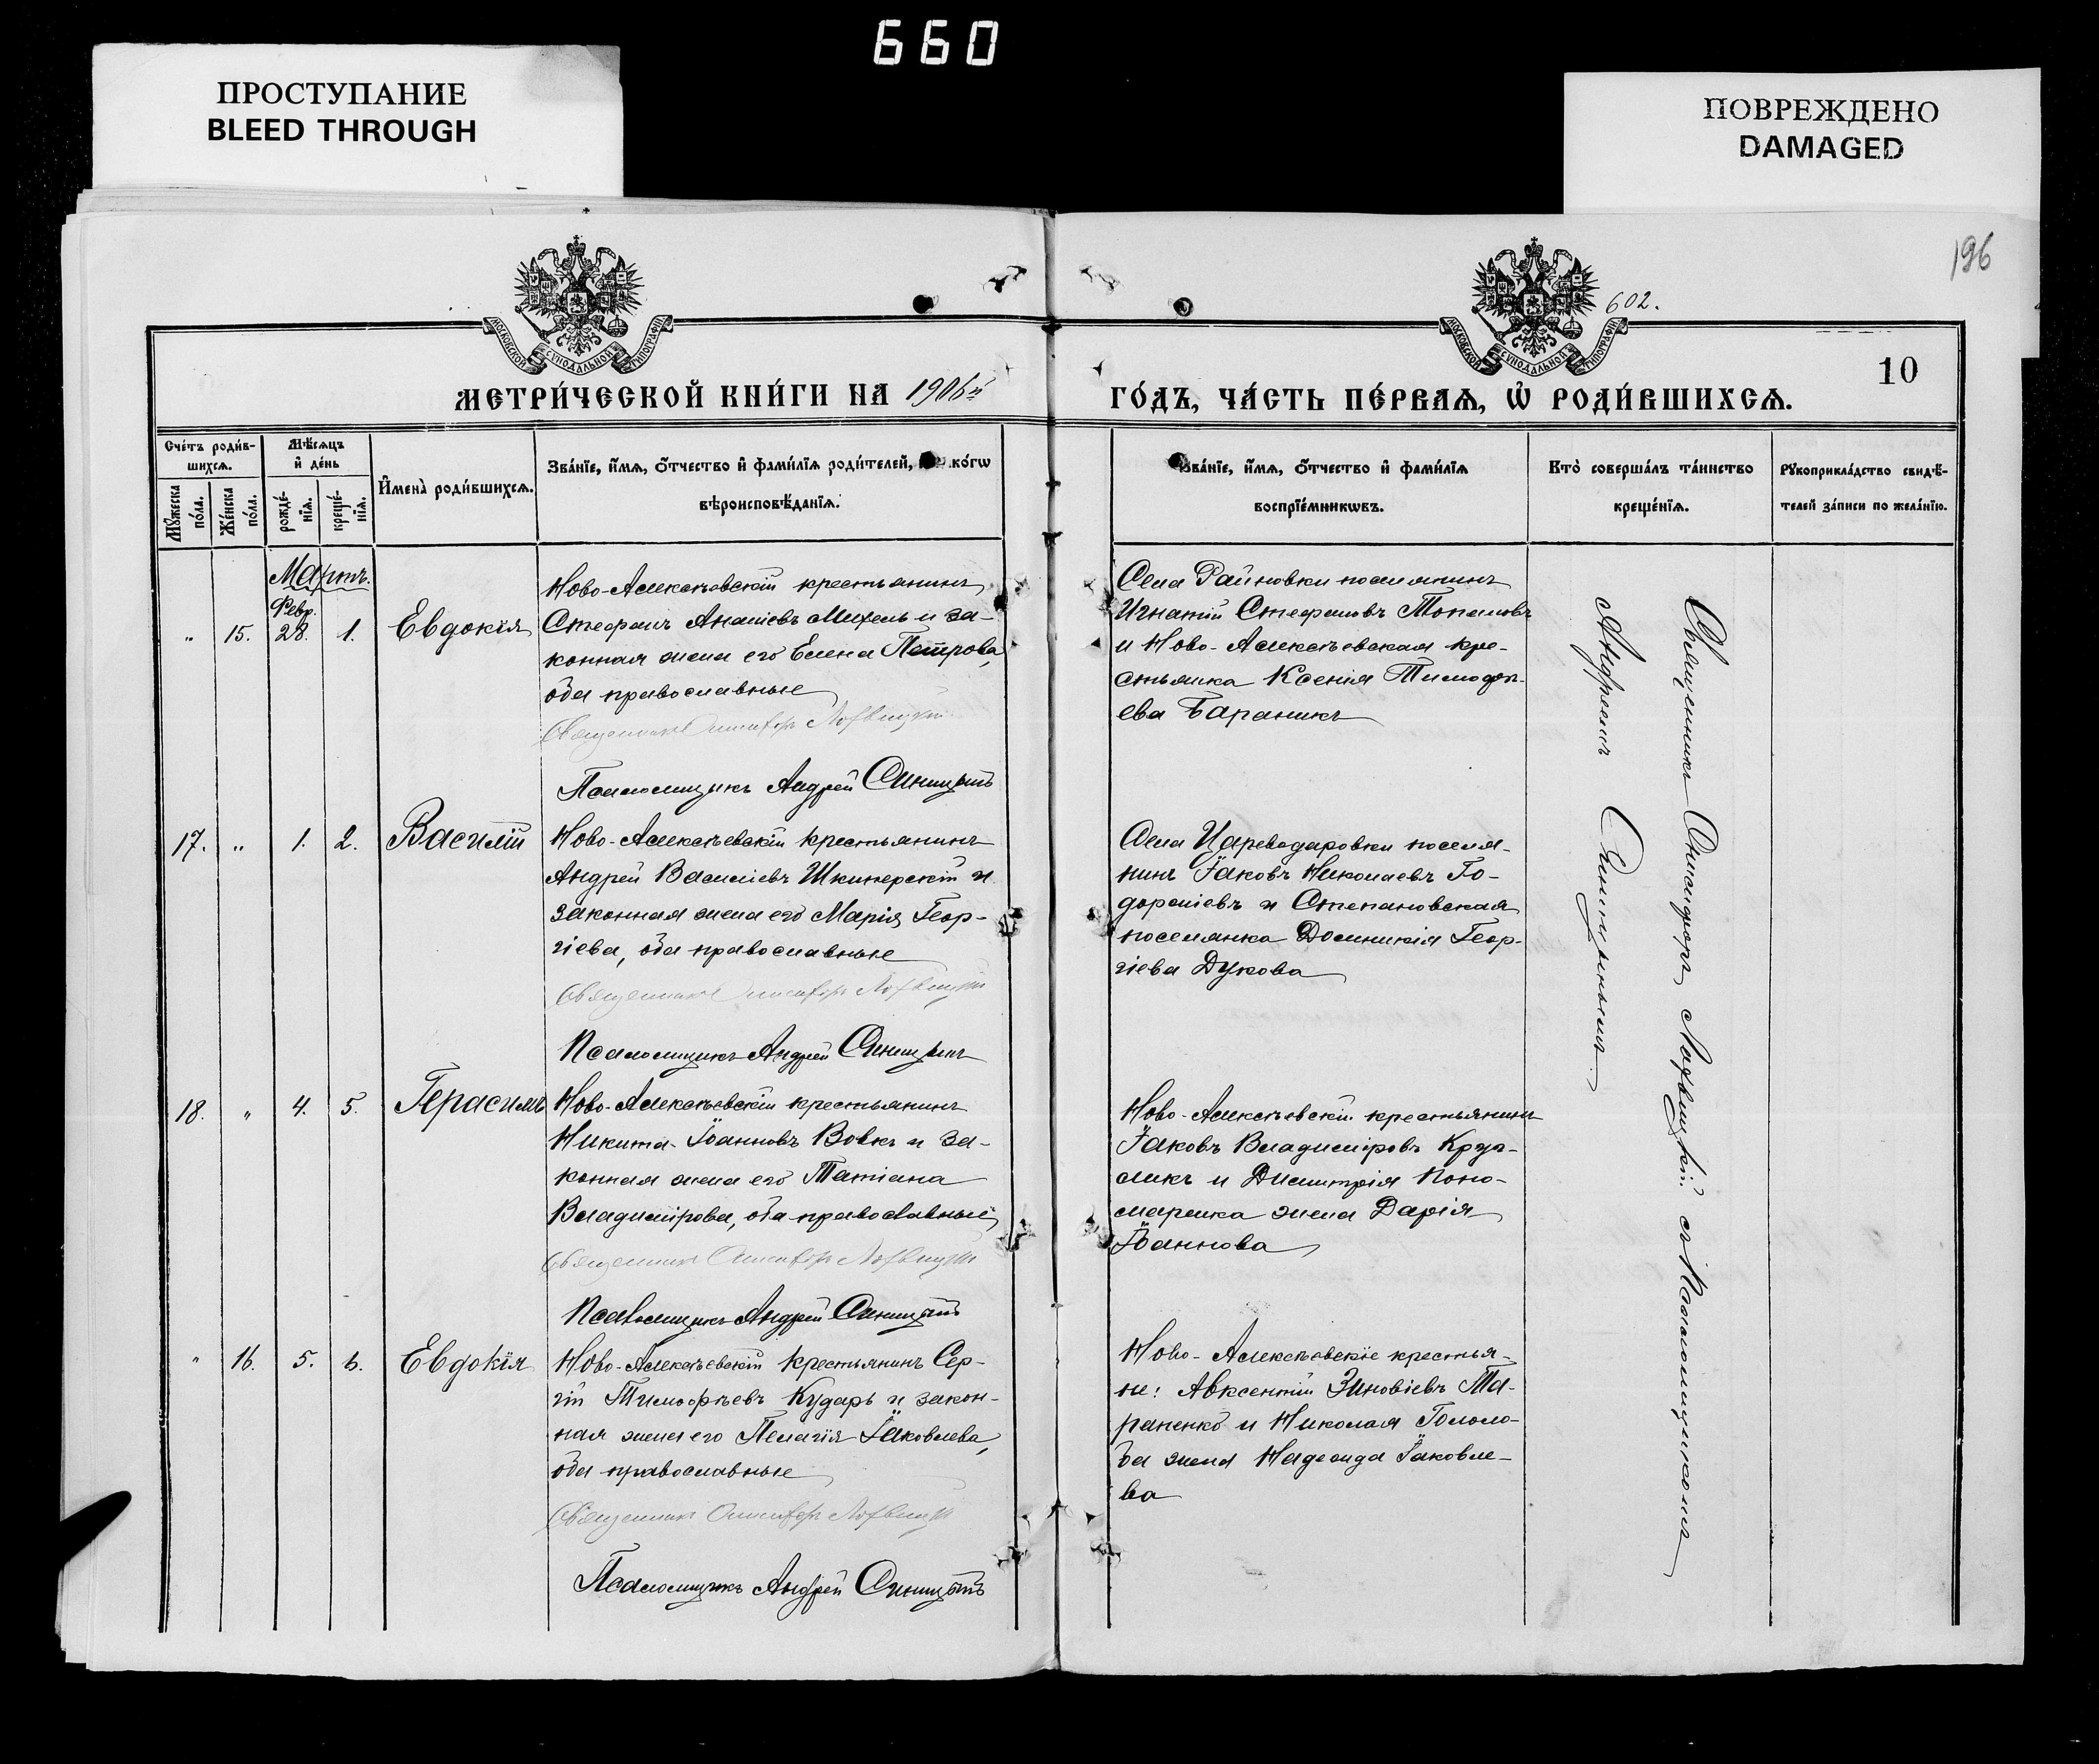 660
ПРОСТУПАНИЕ
BLEED THROUGH
ПОВРЕЖДЕНО
DAMAGED
196
602.
10
МОСКОВСКОЙ СѴНОДАЛЬНОЙ ТИПОГРАФІИ
МОСКОВСКОЙ СѴНОДАЛЬНОЙ ТИПОГРАФІИ
МЕТРИ́ЧЕСКОЙ КНИ́ГИ НА 1906й
ГО́ДЪ, ЧА́СТЬ ПЕ́РВАѦ, Ѡ҆ РОДИ́ВШИХСѦ.
Сче́тъ роди́в-
шихсѧ.
Мꙋ́жеска
по́ла.
Же́нска
по́ла.
Мѣ́сѧцъ
и҆ де́нь
рожде́-
нїѧ.
креще́-
нїѧ.
И҆мена̀ роди́вшихсѧ.
Зва́нїе, и҆́мѧ, ѻ҆́тчество и҆ фами́лїѧ роди́телей, ко́гѡ
вѣроисповѣ́данїѧ.
Зва́нїе, и҆́мѧ, ѻ҆́тчество и҆ фами́лїѧ
воспрїе́мникѡвъ.
Кто̀ соверша́лъ та́инство
креще́нїѧ.
Рꙋкоприкла́дство свидѣ́-
телей за́писи по жела́нїю.
Мартъ.
Февр.
" 15. 28. 1. Евдокія
Ново-Алексѣевскій крестьянинъ
Стефанъ Ананіевъ Михель и за-
конная жена его Елена Петрова,
оба православные
Священникъ Онисифоръ Лохвицкій
Псаломщикъ Андрей Синицынъ
Села Райновки поселянинъ
Игнатій Стефановъ Топаловъ
и Ново-Алексѣевская кре-
стьянка Ксенія Тимофѣ-
ева Бараникъ
17. " 1. 2. Василій
Ново-Алексѣевскій крестьянинъ
Андрей Василіевъ Шкиперскій и
законная жена его Марія Геор-
гіева, оба православные
Священникъ Онисифоръ Лохвицкій
Псаломщикъ Андрей Синицынъ
Села Цареводаровки поселя-
нинъ Іаковъ Николаевъ То-
дорашевъ и Степановская
поселянка Доминикія Геор-
гіева Дукова
18. " 4. 5. Герасимъ
Ново-Алексѣевскій крестьянинъ
Никита Іоанновъ Вовкъ и за-
конная жена его Татіана
Владимірова, оба православные
Священникъ Онисифоръ Лохвицкій
Псаломщикъ Андрей Синицынъ
Ново-Алексѣевскій крестьянинъ
Іаковъ Владиміровъ
и Димитрія Поно-
маренка жена Дарія
Іоаннова
" 16. 5. 6. Евдокія
Ново-Алексѣевскій крестьянинъ Сер-
гій Тимофѣевъ Кударь и закон-
ная жена его Пелагія Іаковлева,
оба православные
Священникъ Онисифоръ Лохвицкій
Псаломщикъ Андрей Синицынъ
Ново-Алексѣевскіе крестья-
не: Авксентій Зиновіевъ Та-
раненко и Николая Головло-
ба жена Надежда Іаковле-
ва
Священникъ Онисифоръ Лохвицкій съ Псаломщикомъ
Андреемъ Синицынымъ.